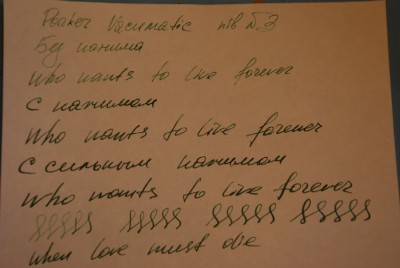 Parker Vacumatic nib №3
Без нажима
Who wants to live forever
С нажимом
Who wants to live forever
С сильным нажимом
Who wants to live forever
when love must die